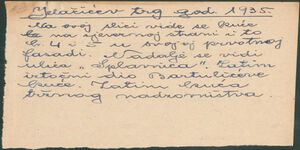 Jelačićev trg god. 1935.
Na ovoj slici vide se kuće
na sjevernoj strani i to
br. 4 i 5 u svojoj prvotnoj
fasadi. Nadalje se vidi
ulica "Splavnica". Zatim
istočni dio Bartulićeve
kuće. Zatim kuća
trznog nadzorništva.